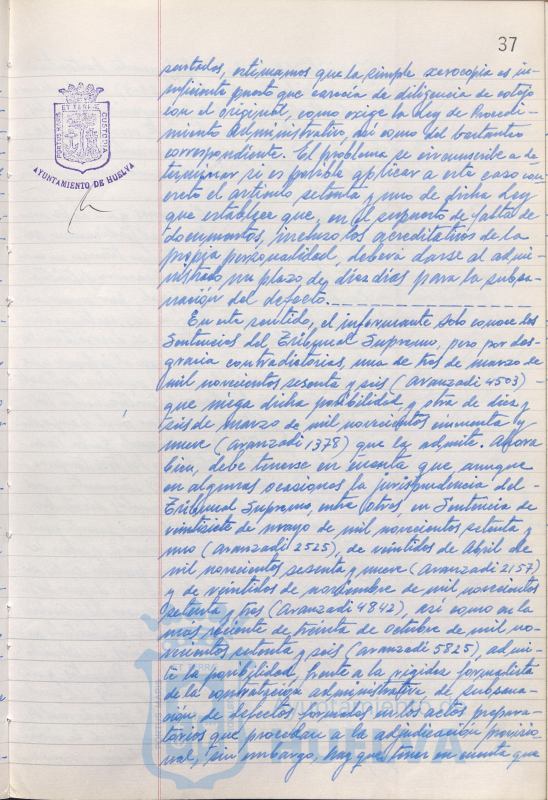 37
sentados, estimamos que la simple xerocopia es in-
suficiente puesto que carecía de diligencia de cotejo
con el original, como exige la Ley de Procedi-
miento administrativo, así como del bastanteo
correspondiente. El problema se circunscribe a de-
terminar si es posible aplicar a este caso con-
creto el artículo setenta y uno de dicha Ley
que establece que, en el supuesto de falta de
documentos, incluso los acreditativos de la
propia personalidad, deberá darse al admi-
nistrado un plazo de diez días para la subsa-
nación del defecto.
En este sentido, el informante solo conoce dos
Sentencias del Tribunal Supremo, pero por des-
gracia contradictorias, una de tres de marzo de
mil novecientos sesenta y seis (Aranzadi 4503)
que niega dicha posibilidad y otra de diez y
seis de marzo de mil novecientos cincuenta y
nueve (Aranzadi 1378) que la admite. Ahora
bien, debe tenerse en cuenta que aunque
en algunas ocasiones la jurisprudencia del
Tribunal Supremo, entre otras, en Sentencia de
veintisiete de mayo de mil novecientos setenta y
uno (Aranzadi 2525), de veintidos de Abril de
mil novecientos sesenta y nueve (Aranzadi 2157)
y de veintidos de noviembre de mil novecientos
setenta y tres (Aranzadi 4842), así como en la
más reciente de treinta de octubre de mil no-
vecientos setenta y seis (Aranzadi 5825), admi-
te la posibilidad, frente a la rigidez formalista
de la contratación administrativa, de subsana-
ción de defectos formales en los actos prepara-
torios que procedan a la adjudicación provisio-
nal, sin embargo, hay que tener en cuenta que
PORTUS MARIS
ET TERRAE
CUSTODIA
AYUNTAMIENTO DE HUELVA
Ayuntamiento de
HUELVA